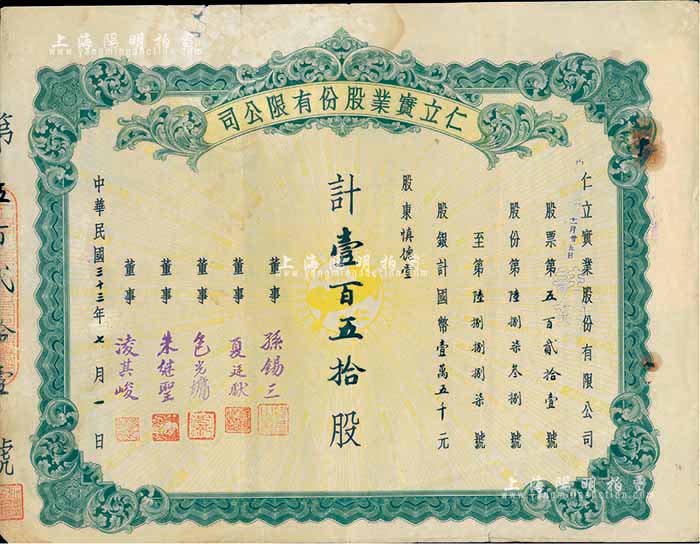 上海陽明拍賣
www.yangmingauction.com
仁立實業股份有限公司
仁立實業股份有限公司
股票第五百貳拾壹號
股份第陸捌柒叁捌號
至第陸捌捌捌柒號
股銀計國幣壹萬五千元
股東慎德堂
計壹百五拾股
董事 孫錫三
董事 夏廷獻
董事 包光鏞
董事 朱継聖
董事 淩其峻
中華民國三十三年七月一日
第五百貳拾壹號
上海陽明拍賣
www.yangmingauction.com
上海陽明拍賣
www.yangmingauction.com